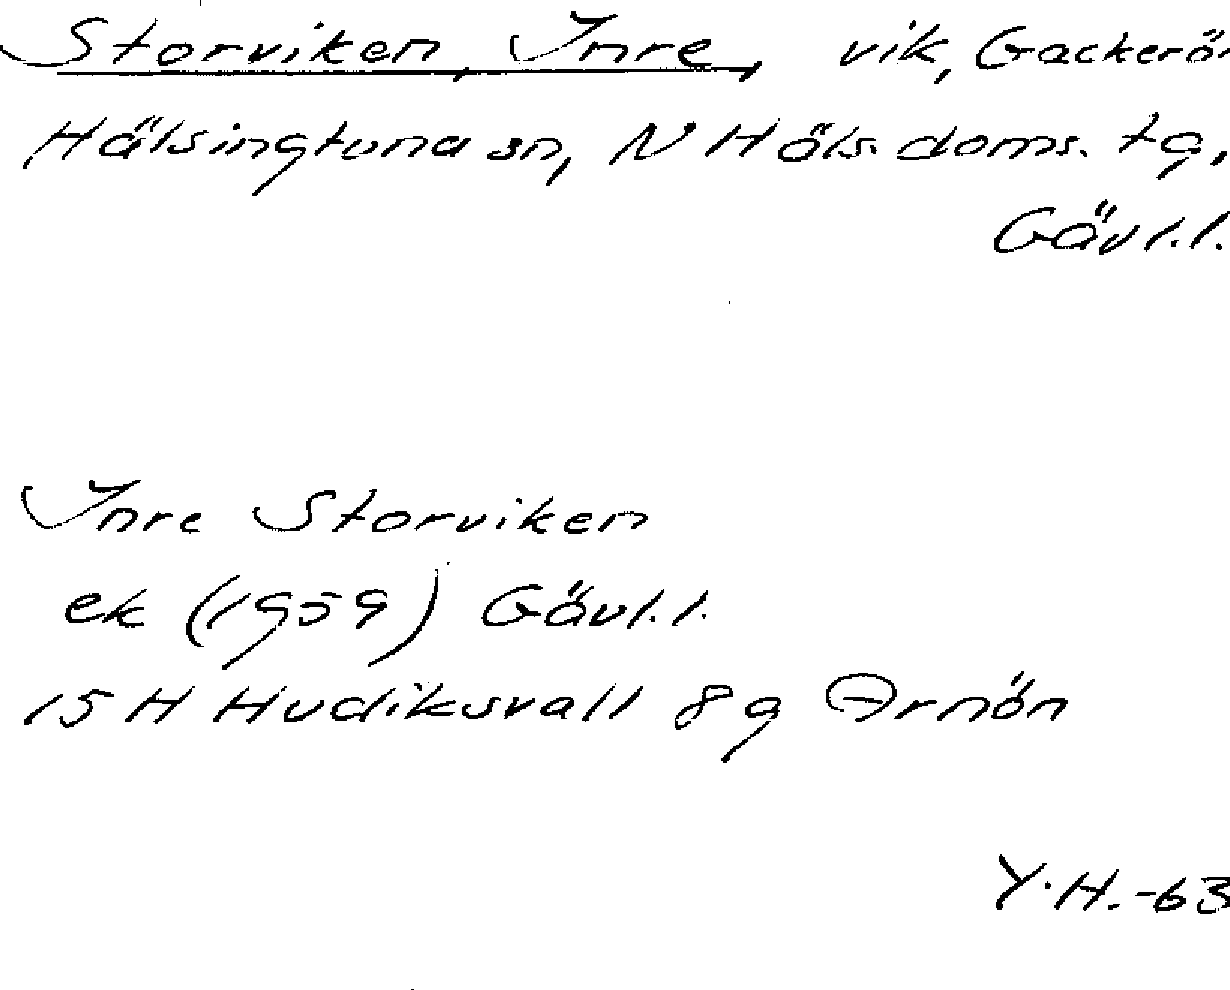 Storviken, Inre, vik, Gackerö
Hälsingtuna sn, N Häls. doms. tg,
Gävl.l.
Inre Storviken
ek (1959) Gävl.l.
15 H Hudiksvall 8 g Arnön
Y.H.-63